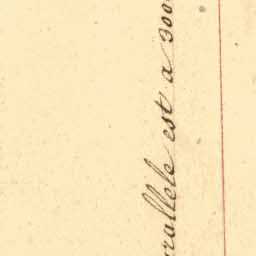 rallele est a 300